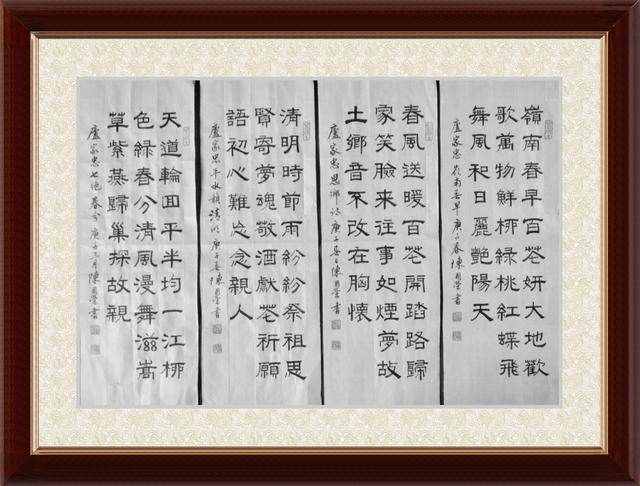 嶺南春早百花妍大地歡
歌萬物鮮柳綠桃紅蝶飛
舞風和日麗艷陽天
盧家忠嶺南春早庚子春陳書
春風送暖百花開踏路歸
家笑臉來往事如煙夢故
土鄉音不改在胸懷
盧家忠思鄉詠庚子春日陳書
清明時節雨紛紛祭祖思
賢寄夢魂敬酒獻花祈願
語初心難忘念親人
盧家忠平水韻清明庚子春陳書
天道輪回平半均一江柳
色綠春分清風漫舞滋嵩
草紫燕歸巢探故親
盧家忠七絕春分庚子三月陳書